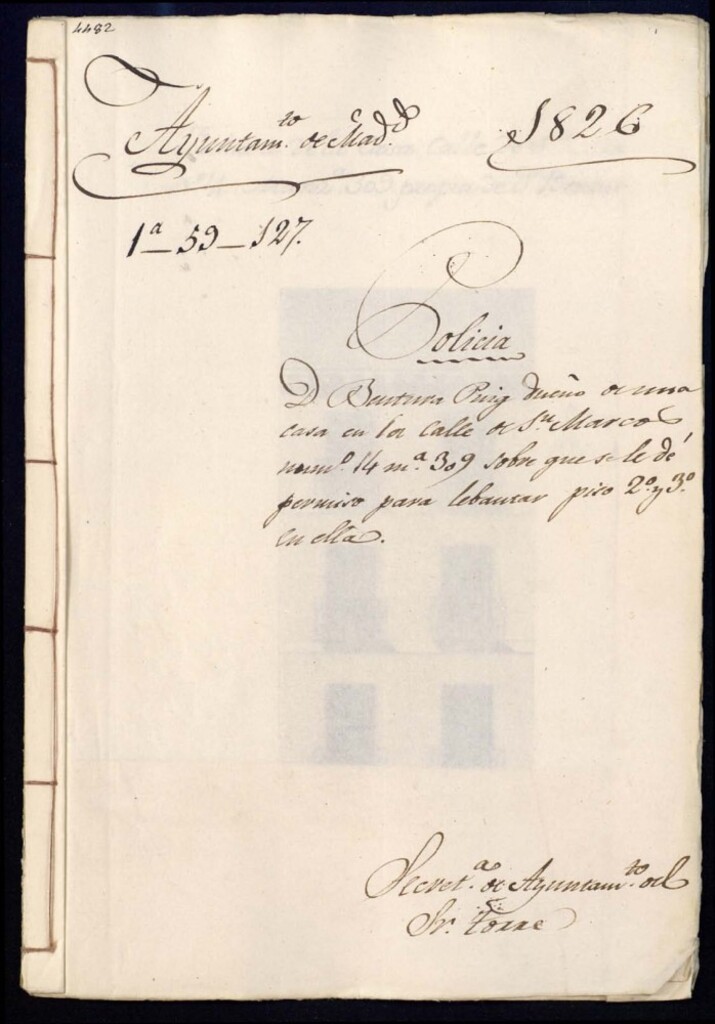 4482
Ayuntam.to de Mad.d 1826
1a_59_127.
Policia
D Bentura Puig dueño de una
casa en la calle de Sn Marcos
num.o 14 m.a 309 sobre que se le dé
permiso para lebantar piso 2.o y 3.o
en ella.
Secret.a de Ayuntam.to del
Sr. Torre